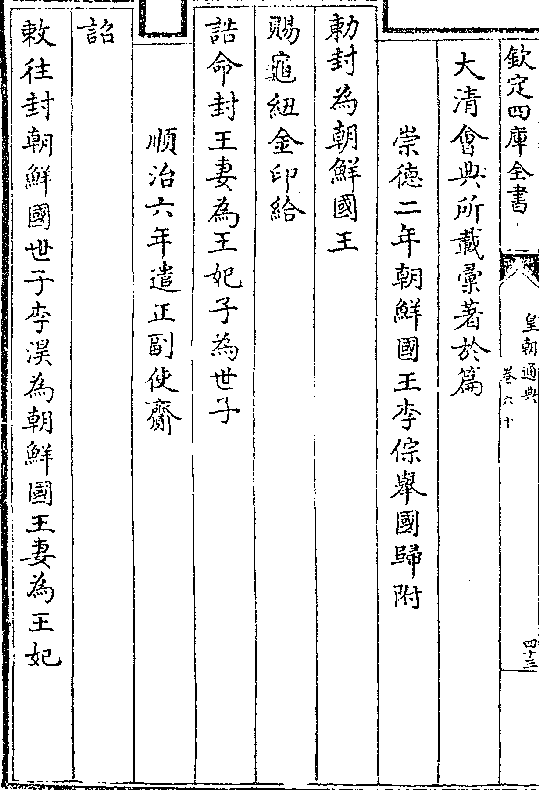 欽定四庫全書
皇朝通典
卷六十
四十三
大清會典所載彙著於篇
崇德二年朝鮮國王李倧舉國歸附
勅封為朝鮮國王
賜龜紐金印給
誥命封王妻為王妃子為世子
順治六年遣正副使齎
詔
敕往封朝鮮國世子李淏為朝鮮國王妻為王妃